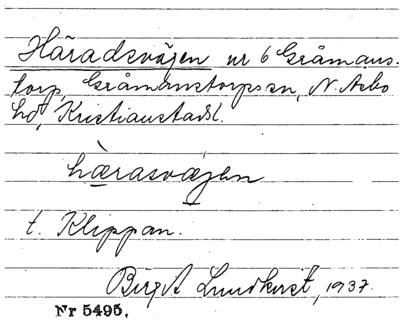 Häradsvägen nr 6 Gråmans-
torp, Gråmanstorps sn, N. Åsbo
hd, Kristianstads l.
hàrasvæjen
t. Klippan.
Birgit Lundkvist, 1937.
Nr 5495.